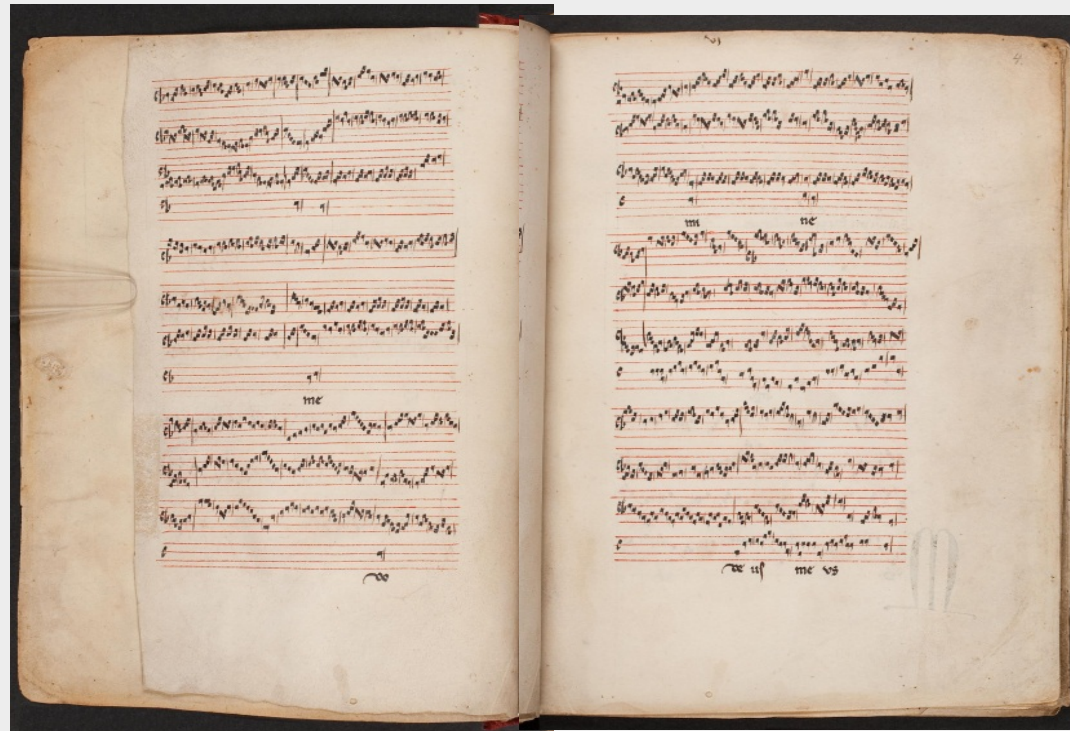 me
do
4
mi ne
de uſ me vs